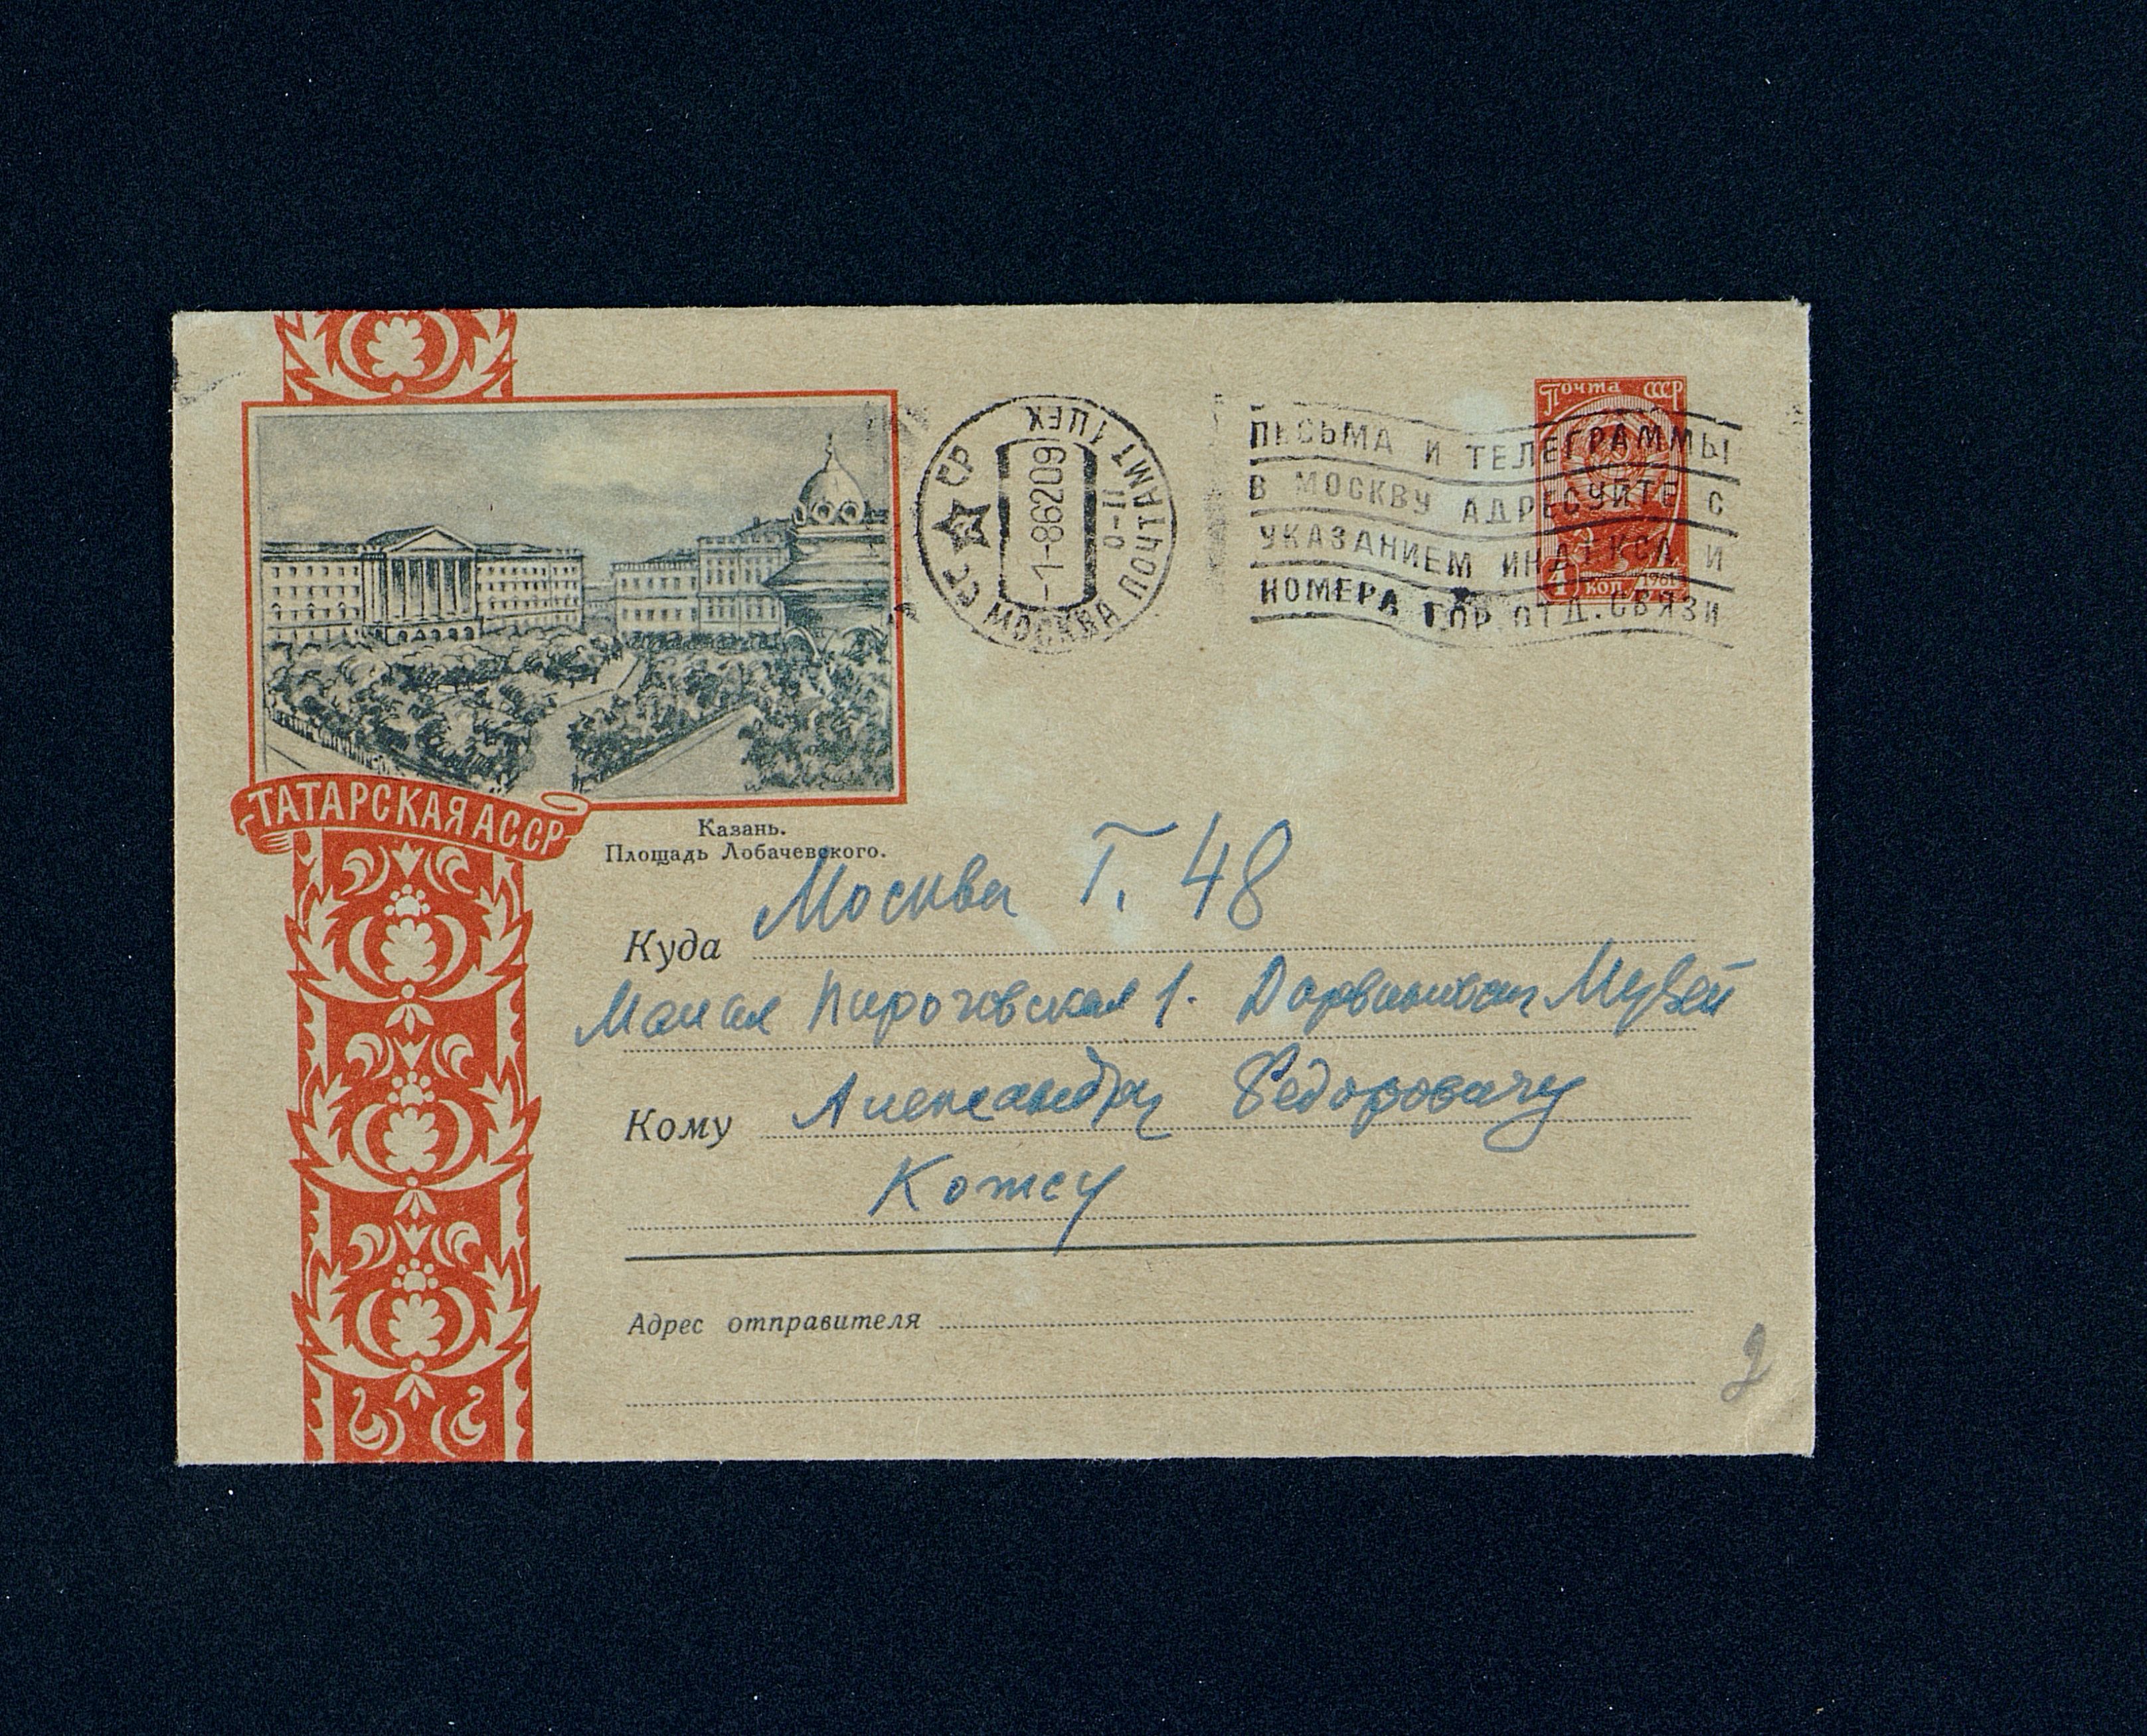 Почта СССР
4 коп. 1961
СССР
МОСКВА ПОЧТАМТ 1 ЦЕХ
-1-86209
0-11
ПИСЬМА И ТЕЛЕГРАММЫ
В МОСКВУ АДРЕСУЙТЕ С
УКАЗАНИЕМ ИНДЕКСА И
НОМЕРА ГОР.ОТД.СВЯЗИ
ТАТАРСКАЯ АССР
Казань.
Площадь Лобачевского.
Куда Москва Г. 48
Малая Пироговская 1. Дарвиновский Музей
Кому Александру Федоровичу
Котсу
Адрес отправителя
2